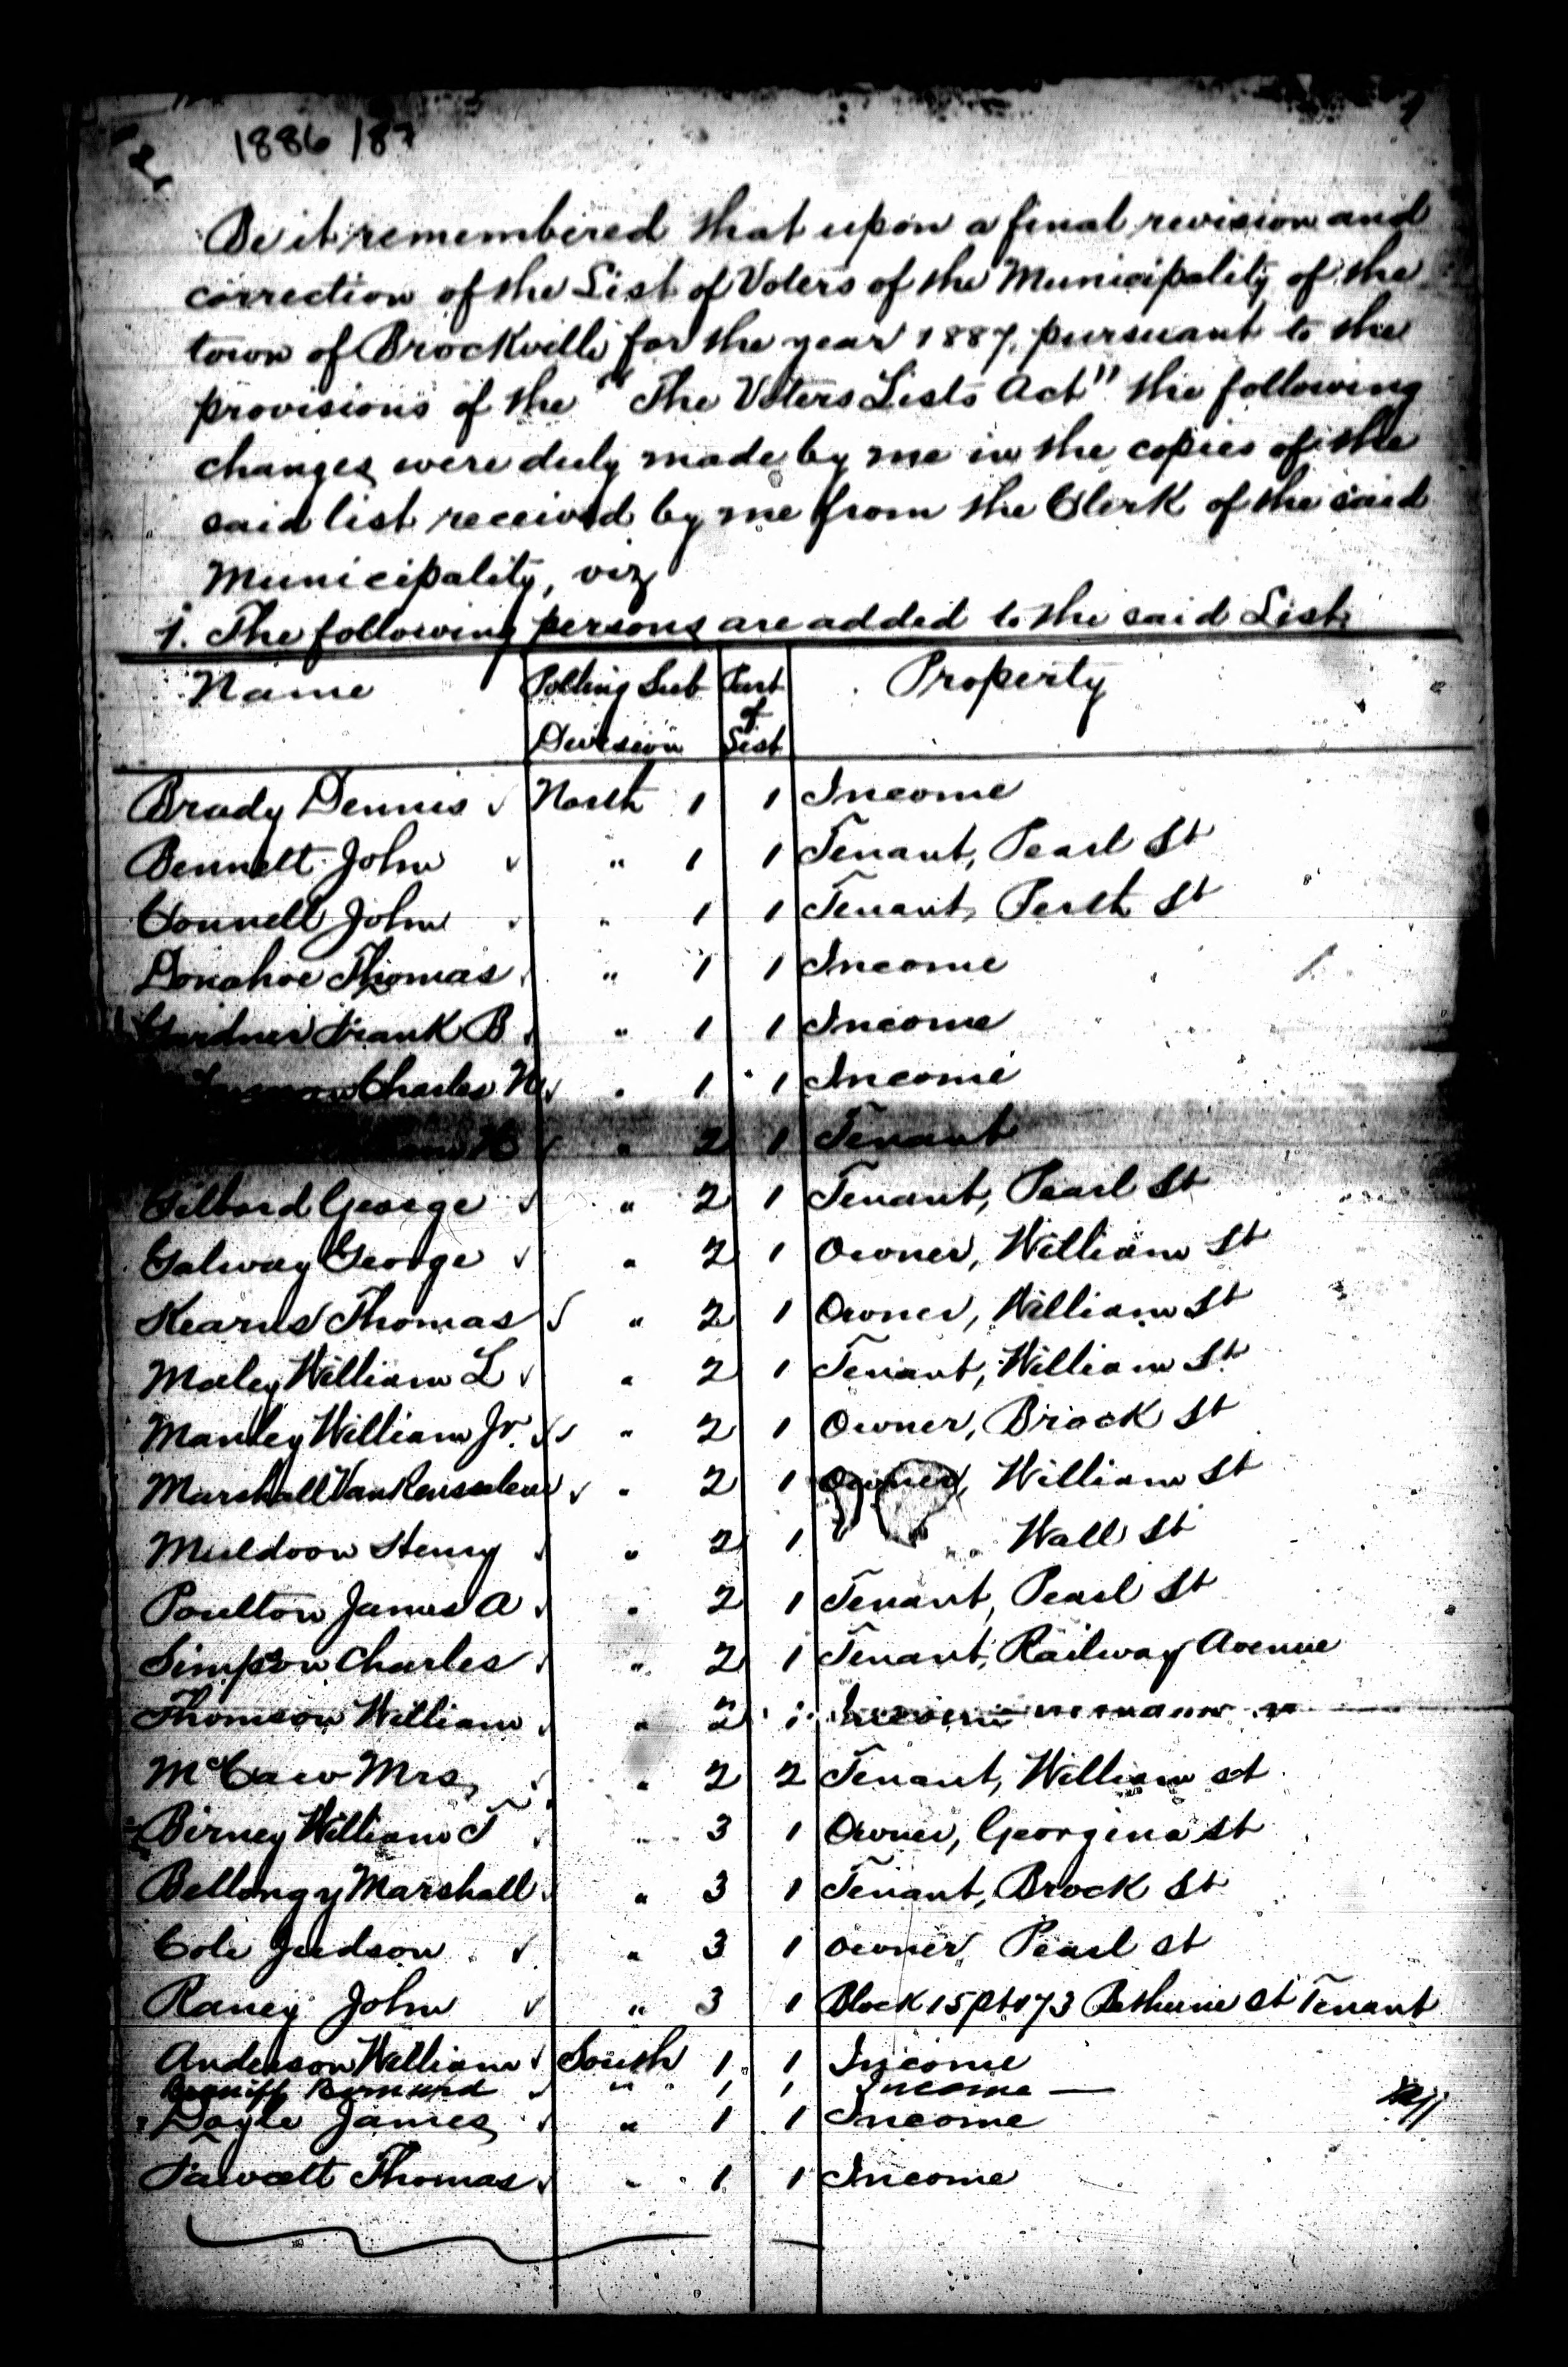 1886/87
Be it remembered that upon a final revision and
correction of the List of Voters of the Municipality of the
town of Brockville for the year 1887, pursuant to the
provisions of the "The Voters Lists Act" the following
changes were duly made by me in the copies of the
said list received by me from the Clerk of the said
Municipality, viz
1. The following persons are added to the said List
Name Polling Sub Division Part of List Property
Brady Dennis ✓ North 1 1 Income
Bennett John ✓ " 1 1 Tenant, Pearl St
Connell John ✓ " 1 1 Tenant, Perth St
Donahoe Thomas ✓ " 1 1 Income
Gardner Frank B ✓ " 1 1 Income
Charles ✓ " 1 1 Income
✓ " 2 1 Tenant
George ✓ " 2 1 Tenant, Pearl St
Galway George ✓ " 2 1 Owner, William St
Kearns Thomas ✓ " 2 1 Owner, William St
William L ✓ " 2 1 Tenant, William St
Manley William Jr. ✓✓ " 2 1 Owner, Brock St
Marshall Van Rensselear ✓ " 2 1 Owner, William St
Muldoon Henry ✓ " 2 1 Wall St
Poulton James A ✓ " 2 1 Tenant, Pearl St
Simpson Charles ✓ " 2 1 Tenant, Railway Avenue
Thomson William ✓ " 2 1
McCaw Mrs, ✓ " 2 2 Tenant, William st
Birney William T ✓ " 3 1 Owner, Georgina st
Bellongy Marshall ✓ " 3 1 Tenant, Brock St
Cole Judson ✓ " 3 1 Owner, Pearl st
Raney John ✓ " 3 1 Block 15 pt 173 Bethune st Tenant
Anderson William ✓ South 1 1 Income
Bernard ✓ " 1 1 Income —
Doyle James ✓ " 1 1 Income
Fawcett Thomas ✓ " 1 1 Income